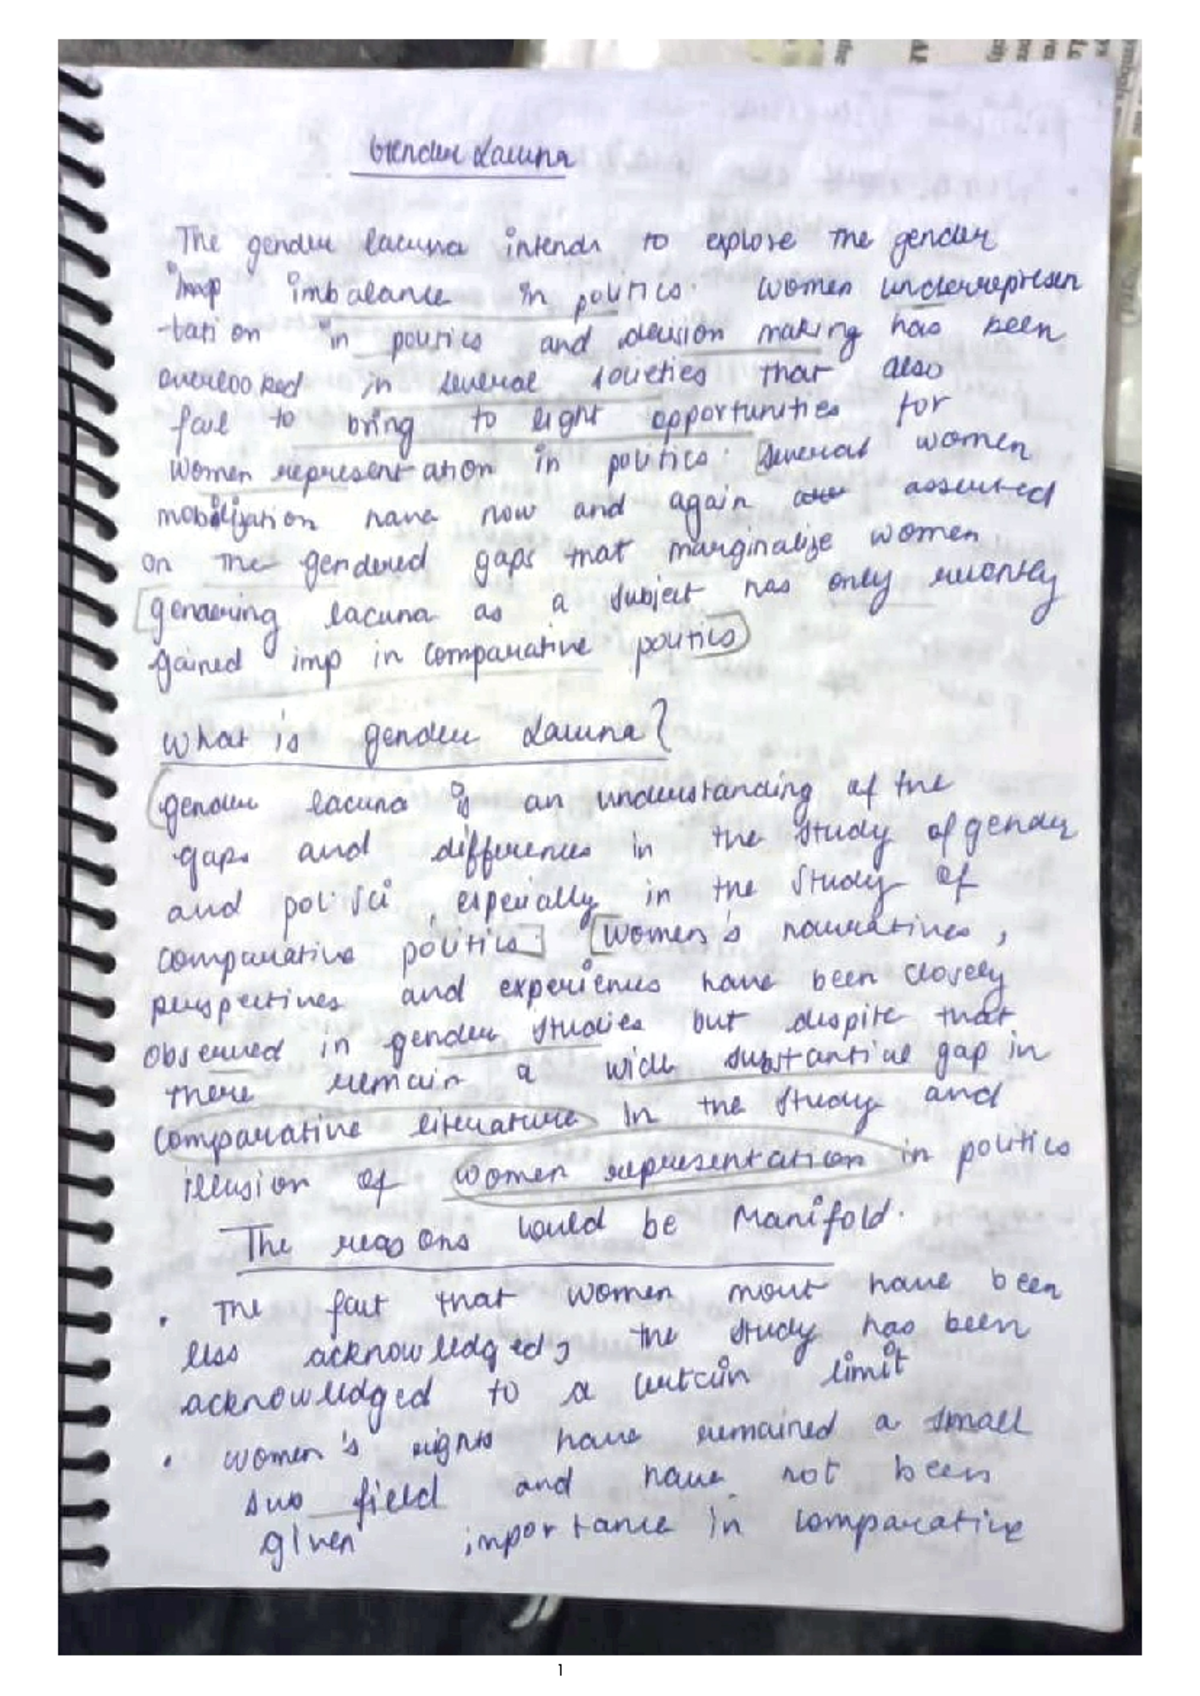 Gender Lacuna
The gender lacuna intends to explore the gender
imbalance in politics. Women underrepresen
-tation in politics and decision making has been
overlooked in several societies that also
fail to bring to light opportunities for
women representation in politics. [Several women
mobilization have now and again asserted
on the gendered gaps that marginalize women
[gendering lacuna as a subject has only recently
gained imp in comparative politics]
What is gender Lacuna?
gender lacuna is an understanding of the
gaps and differences in the study of gender
and pol. sci, especially in the study of
comparative politics.] [Women's narratives,
perspectives and experiences have been closely
observed in gender studies but despite that
there remain a wide substantive gap in
comparative literature in the study and
illusion of women representation in politics
The reasons could be Manifold.
• The fact that women mout have been
less acknowledged, the study has been
acknowledged to a certain limit
• women's rights have remained a small
sub field and have not been
given importance in comparative
1